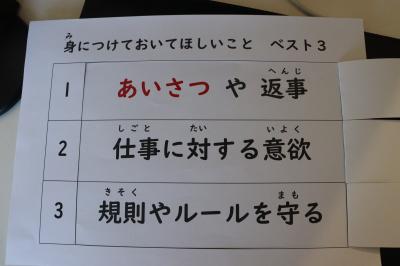 み
身につけておいてほしいこと ベスト３
へんじ
1 あいさつ や 返事
しごと たい いよく
2 仕事に対する意欲
きそく まも
3 規則やルールを守る